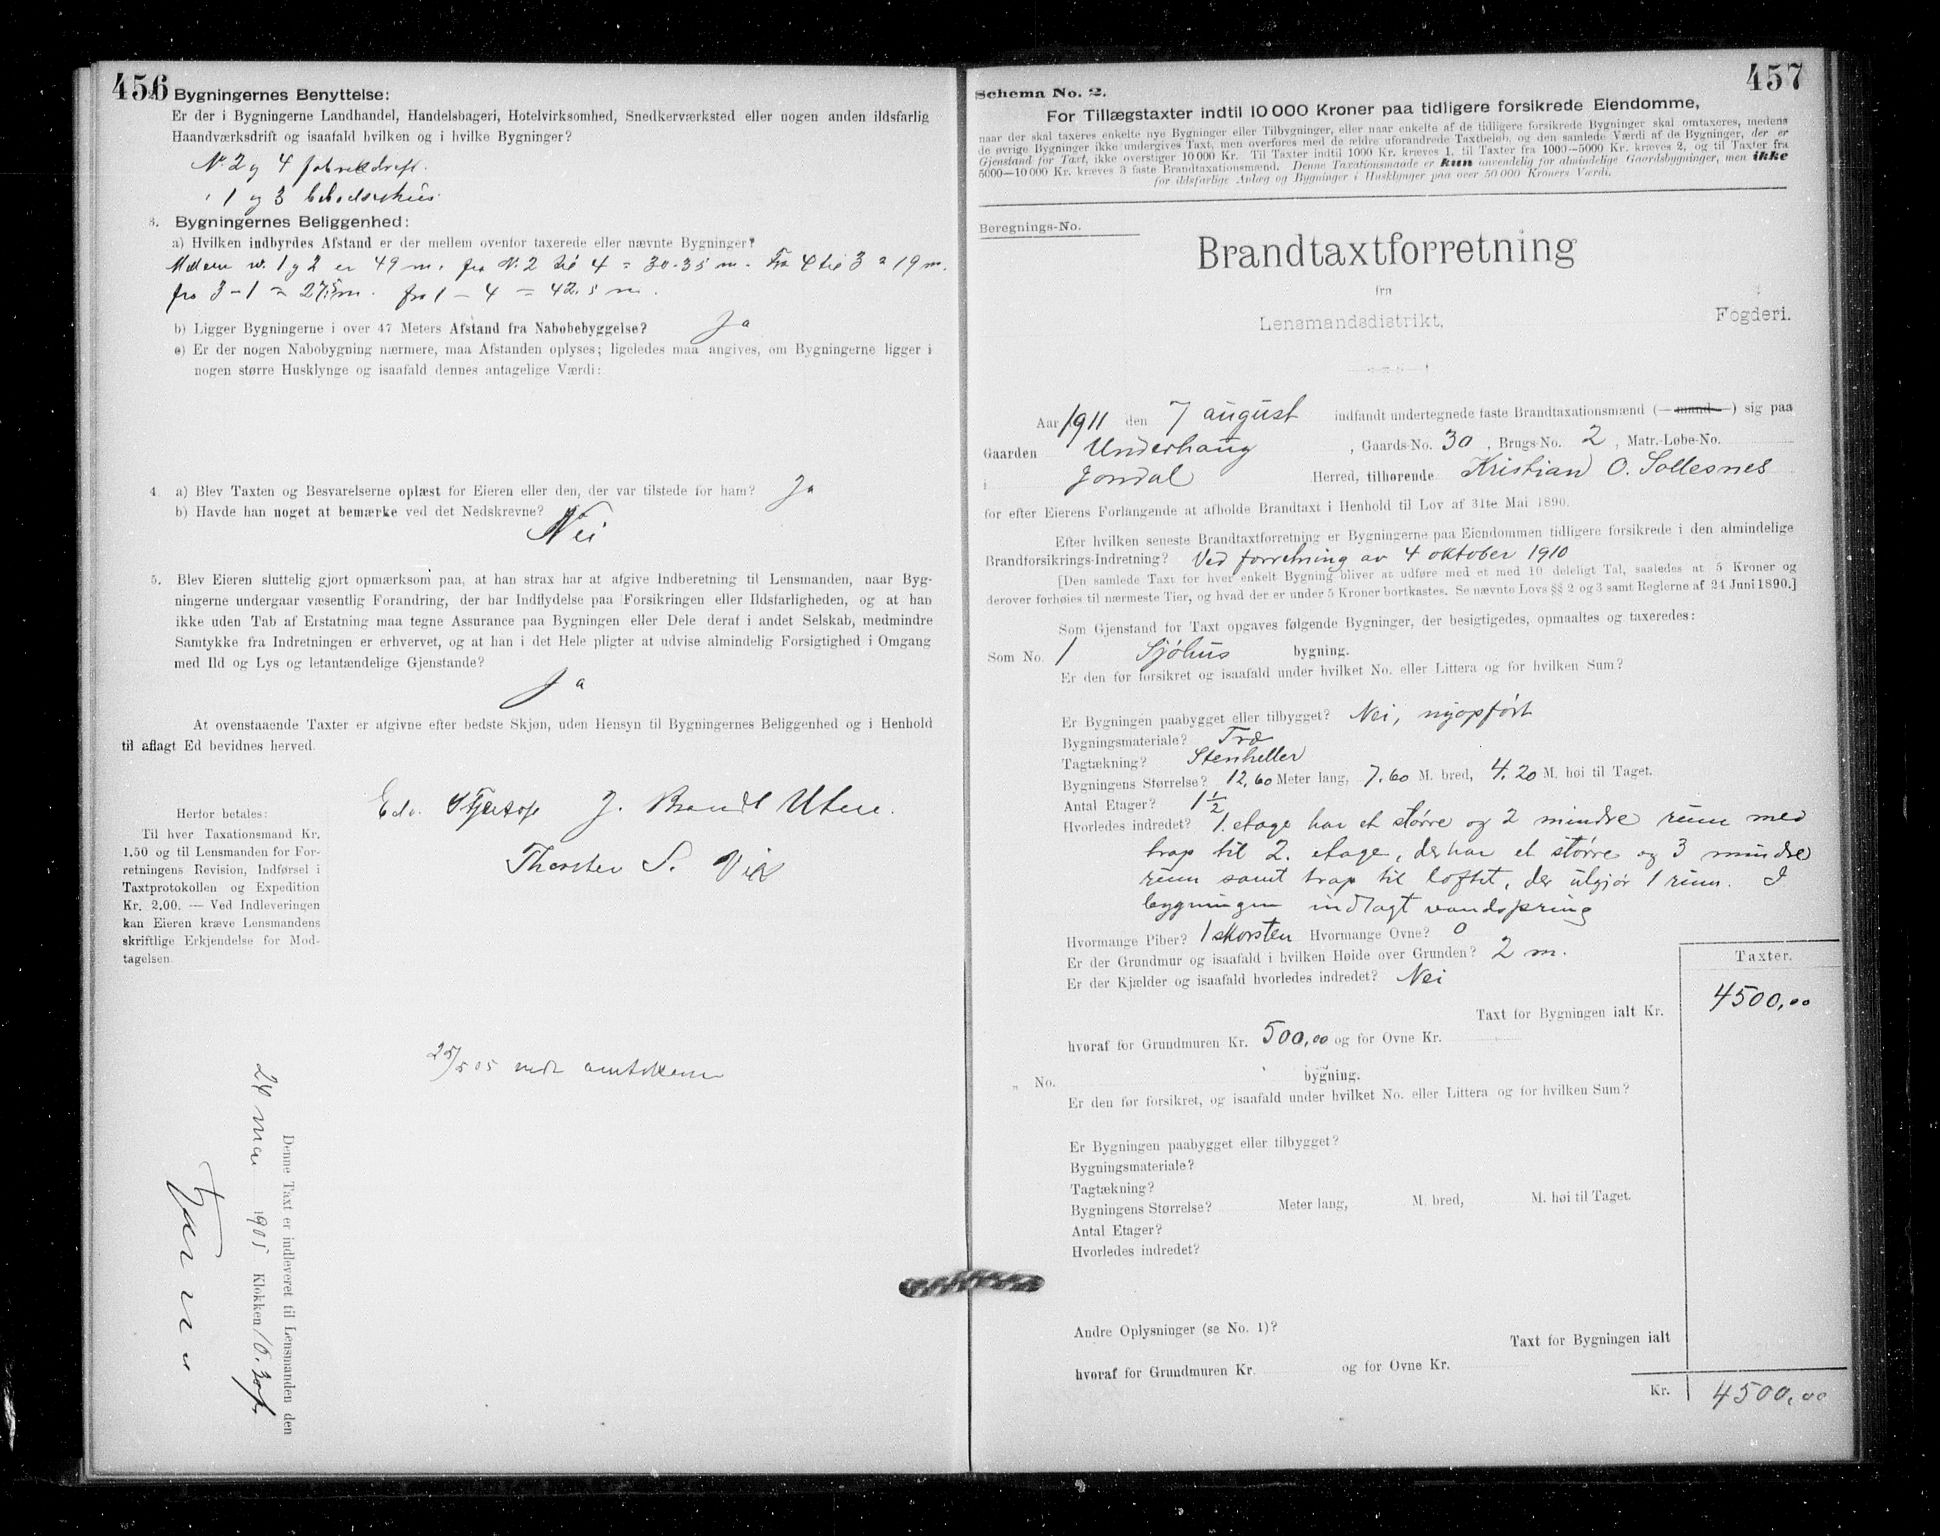 456
2. Bygningernes Benyttelse:
Er der i Bygningerne Landhandel, Handelsbageri, Hotelvirksomhed, Snedkerværksted eller nogen anden ildsfarlig
Haandværksdrift og isaafald hvilken og i hvilke Bygninger?
No. 2 og 4 fabrikdrift.
" 1 og 3 beboelseshus.
3. Bygningernes Beliggenhed:
a) Hvilken indbyrdes Afstand er der mellem ovenfor taxerede eller nævnte Bygninger?
Mellem no. 1 og 2 er 49 m. fra No. 2 til 4 = 30.35 m. Fra 4 til 3 = 19 m.
fra 3 – 1 = 27,5 m. fra 1 – 4 = 42,5 m.
b) Ligger Bygningerne i over 47 Meters Afstand fra Nabobebyggelse? Ja
c) Er der nogen Nabobygning nærmere, maa Afstanden oplyses; ligeledes maa angives, om Bygningerne ligger i
nogen større Husklynge og isaafald dennes antagelige Værdi:
4. a) Blev Taxten og Besvarelserne oplæst for Eieren eller den, der var tilstede for ham? Ja
b) Havde han noget at bemærke ved det Nedskrevne? Nei
5. Blev Eieren sluttelig gjort opmærksom paa, at han strax har at afgive Indberetning til Lensmanden, naar Byg-
ningerne undergaar væsentlig Forandring, der har Indflydelse paa Forsikringen eller Ildsfarligheden, og at han
ikke uden Tab af Erstatning maa tegne Assurance paa Bygningen eller Dele deraf i andet Selskab, medmindre
Samtykke fra Indretningen er erhvervet, og at han i det Hele pligter at udvise almindelig Forsigtighed i Omgang
med Ild og Lys og letantændelige Gjenstande?
Ja
At ovenstaaende Taxter er afgivne efter bedste Skjøn, uden Hensyn til Bygningernes Beliggenhed og i Henhold
til aflagt Ed bevidnes herved.
J. Brandt Utne.
Thorsten S. Vik
Herfor betales:
Til hver Taxationsmand Kr.
1.50 og til Lensmanden for For-
retningens Revision, Indførsel i
Taxtprotokollen og Expedition
Kr. 2.00. — Ved Indleveringen
kan Eieren kræve Lensmandens
skriftlige Erkjendelse for Mod-
tagelsen.
25/5 05
Denne Taxt er indleveret til Lensmanden den
24 mai 1905 Klokken 10.
457
Schema No. 2.
For Tillægstaxter indtil 10 000 Kroner paa tidligere forsikrede Eiendomme,
naar der skal taxeres enkelte nye Bygninger eller Tilbygninger, eller naar enkelte af de tidligere forsikrede Bygninger skal omtaxeres, medens
de øvrige Bygninger ikke undergives Taxt, men overføres med de ældre uforandrede Taxtbeløb, og den samlede Værdi af de Bygninger, der er
Gjenstand for Taxt, ikke overstiger 10 000 Kr. Til Taxter indtil 1000 Kr. kræves 1, til Taxter fra 1000—5000 Kr. kræves 2, og til Taxter fra
5000—10 000 Kr. kræves 3 faste Brandtaxationsmænd. Denne Taxationsmaade er kun anvendelig for almindelige Gaardsbygninger, men ikke
for ildsfarlige Anlæg og Bygninger i Husklynger paa over 50 000 Kroners Værdi.
Beregnings-No.
Brandtaxtforretning
fra
Lensmandsdistrikt, Fogderi.
Aar 1911 den 7 august indfandt undertegnede faste Brandtaxationsmænd (—mand—) sig paa
Gaarden Underhaug, Gaards-No. 30, Brugs-No. 2, Matr.-Løbe-No.
i Jondal Herred, tilhørende Kristian O. Sollesnes
for efter Eierens Forlangende at afholde Brandtaxt i Henhold til Lov af 31te Mai 1890.
Efter hvilken seneste Brandtaxtforretning er Bygningerne paa Eiendommen tidligere forsikrede i den almindelige
Brandforsikrings-Indretning? Ved forretning av 4 oktober 1910
[Den samlede Taxt for hver enkelt Bygning bliver at udføre med et med 10 deleligt Tal, saaledes at 5 Kroner og
derover forhøies til nærmeste Tier, og hvad der er under 5 Kroner bortkastes. Se nævnte Lovs §§ 2 og 3 samt Reglerne af 24 Juni 1890.]
Som Gjenstand for Taxt opgaves følgende Bygninger, der besigtigedes, opmaaltes og taxeredes:
Som No. 1 Sjöhus bygning.
Er den før forsikret og isaafald under hvilket No. eller Littera og for hvilken Sum?
Er Bygningen paabygget eller tilbygget? Nei, nyopfört
Bygningsmateriale? Træ
Tagtækning? Stenheller
Bygningens Størrelse? 12,60 Meter lang, 7.60 M. bred, 4.20 M. høi til Taget.
Antal Etager? 1 1/2
Hvorledes indredet? 1. etage har et större og 2 mindre rum med
trap til 2. etage, der har et större og 3 mindre
rum samt trap til loftet, der utgjör 1 rum. I
bygningen indlagt vandspring
Hvormange Piber? 1 skorsten Hvormange Ovne? 0
Er der Grundmur og isaafald i hvilken Høide over Grunden? 2 m.
Er der Kjælder og isaafald hvorledes indredet? Nei
Taxter.
Taxt for Bygningen ialt Kr. 4500,00
hvoraf for Grundmuren Kr. 500,00 og for Ovne Kr.
" No. bygning.
Er den før forsikret, og isaafald under hvilket No. eller Littera og for hvilken Sum?
Er Bygningen paabygget eller tilbygget?
Bygningsmateriale?
Tagtækning?
Bygningens Størrelse? Meter lang, M. bred, M. høi til Taget.
Antal Etager?
Hvorledes indredet?
Andre Oplysninger (se No. 1)?
Taxt for Bygningen ialt
hvoraf for Grundmuren Kr. og for Ovne Kr.
Kr. 4500,00